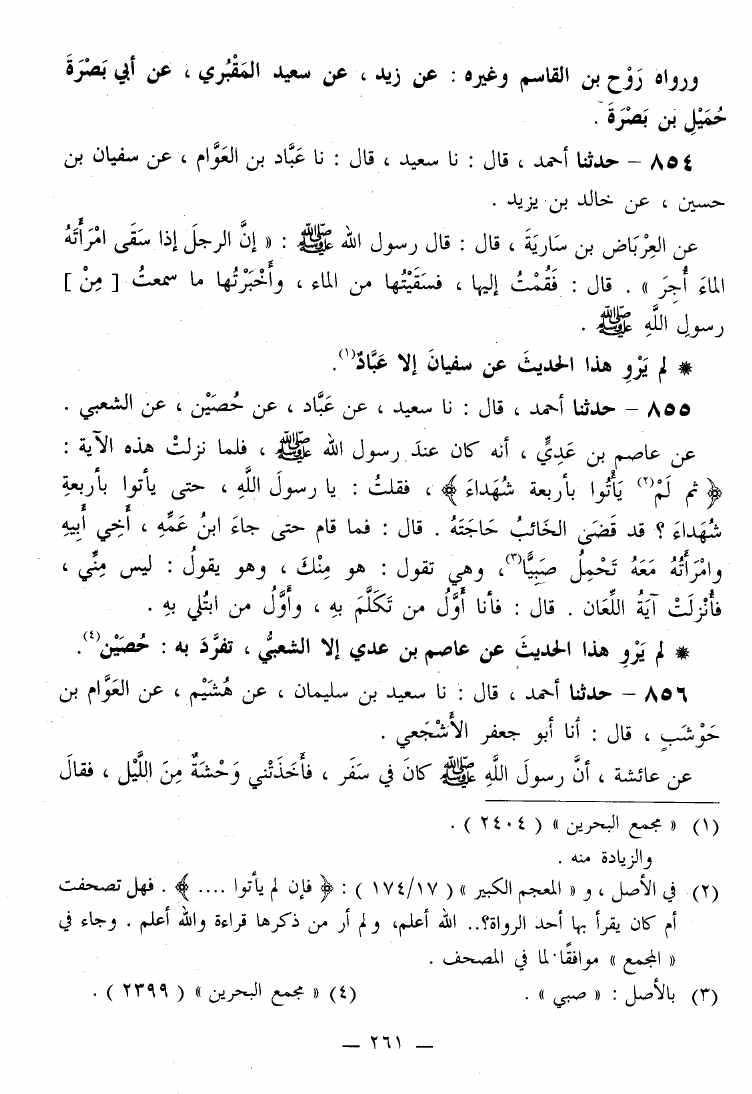 ورواه رَوْح بن القاسم وغيره : عن زيد ، عن سعيد المَقْبُري ، عن أبي بَصْرَةَ
حُمَيْلِ بن بَصْرَةَ .
٨٥٤ – حدثنا أحمد ، قال : نا سعيد ، قال : نا عَبَّاد بن العَوَّام ، عن سفيان بن
حسين ، عن خالد بن يزيد .
عن العِرْبَاض بن سَاريَةَ ، قال : قال رسول الله ﷺ : « إنَّ الرجلَ إذا سَقَى امْرَأَتَهُ
الماءَ أُجِرَ » . قال : فَقُمْتُ إليها ، فسَقَيْتُها من الماء ، وأَخْبَرْتُها ما سمعتُ [ مِنْ ]
رسولِ اللَّهِ ﷺ .
* لم يَرْوِ هذا الحديثَ عن سفيانَ إلا عَبَّادٌ(١).
٨٥٥ – حدثنا أحمد ، قال : نا سعيد ، عن عَبَّاد ، عن حُصَيْن ، عن الشعبي .
عن عاصم بن عَدِيٍّ ، أنه كان عندَ رسول الله ﷺ ، فلما نزلتْ هذه الآية :
﴿ ثم لَمْ(٢) يَأْتُوا بأربعة شُهَداءَ ﴾ ، فقلتُ : يا رسولَ اللَّهِ ، حتى يأتوا بأربعةِ
شُهَدَاءَ ؟ قد قَضَى الخَائبُ حَاجَتَهُ . قال : فما قام حتى جاءَ ابنُ عَمِّهِ ، أَخِي أَبِيهِ
وامْرَأَتُهُ مَعَهُ تَحْمِلُ صَبِيًّا(٣)، وهي تقول : هو مِنْكَ ، وهو يقولُ : ليس مِنِّي ،
فأُنْزِلَتْ آيَةُ اللِّعَان . قال : فأنا أَوَّلُ من تَكَلَّمَ بهِ ، وأَوَّلُ من ابتُلي بهِ .
* لم يَرْوِ هذا الحديثَ عن عاصم بن عدي إلا الشعبيُّ ، تفرَّدَ به : حُصَيْن(٤).
٨٥٦ – حدثنا أحمد ، قال : نا سعيد بن سليمان ، عن هُشَيْم ، عن العَوَّام بن
حَوْشَبٍ ، قال : أنا أبو جعفر الأَشْجَعي .
عن عائشة ، أنَّ رسولَ اللَّهِ ﷺ كانَ في سَفَر ، فأَخَذَتْني وَحْشَةٌ مِنَ اللَّيْل ، فقالَ
(١) « مجمع البحرين » ( ٢٤٠٤ ) .
والزيادة منه .
(٢) في الأصل ، و « المعجم الكبير » ( ١٧٤/١٧ ) : ﴿ فإن لم يأتوا .... ﴾ . فهل تصحفت
أم كان يقرأ بها أحد الرواة؟.. الله أعلم، ولم أر من ذكرها قراءة والله أعلم . وجاء في
« المجمع » موافقًا لما في المصحف .
(٣) بالأصل : « صبي » . (٤) « مجمع البحرين » ( ٢٣٩٩ ) .
— ٢٦١ —